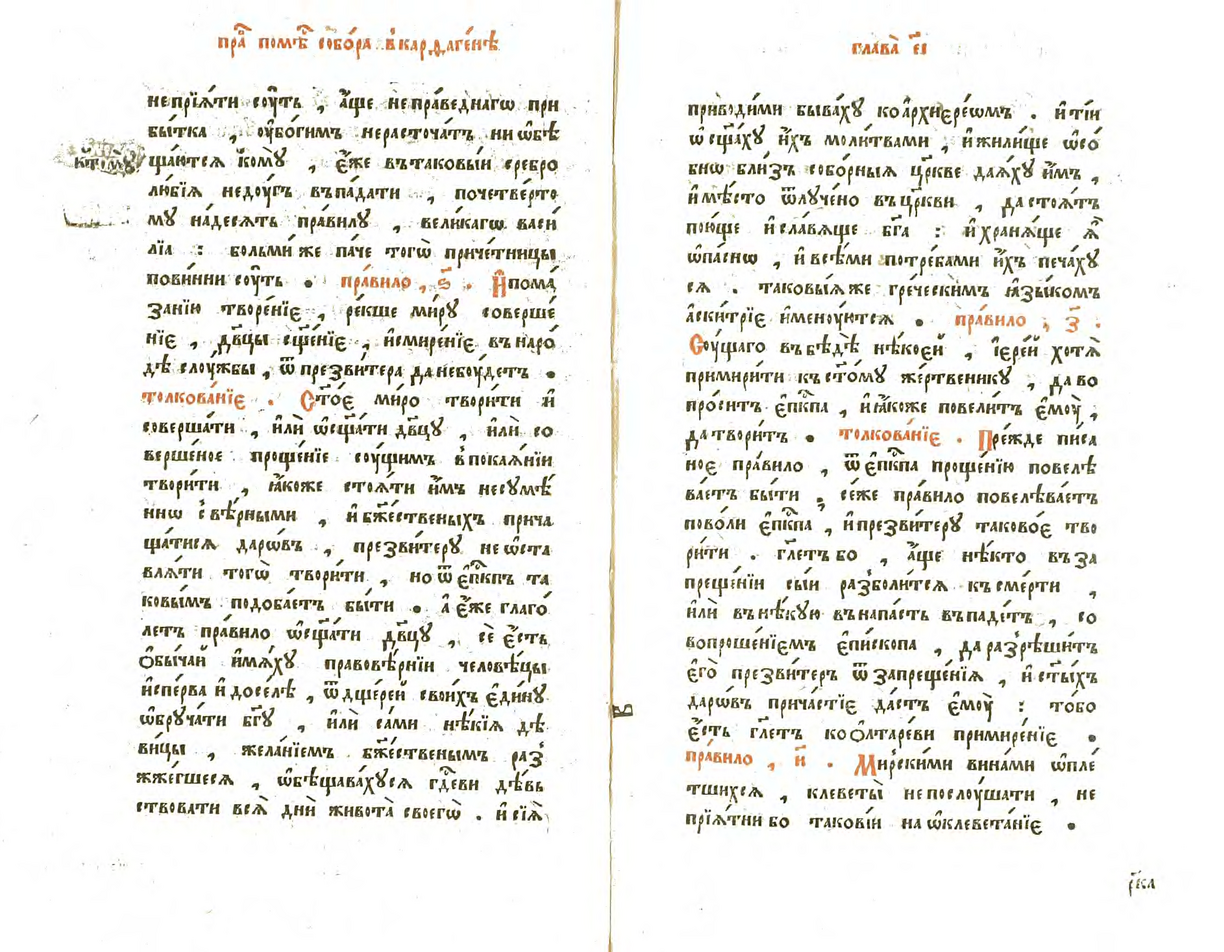 пра́ помѣ́ собо́ра в̾карѳаге́нѣ
непрїѧ́ти сꙋ́ть , а҆́ще непра́веднагѡ при
бы́тка , оу҆бо́гимъ нерасточа́тъ ни ѡ҆бѣ
к томꙋ̀
ща́ютсѧ комꙋ̀ , є҆́же втаковы́и сребро
лю́бїѧ недꙋ́гъ въпада́ти , почетве́рто
мꙋ на́десѧть пра́вилꙋ , вели́кагѡ васи
лїа : больмѝ же па́че тогѡ̀ приче́тницы
пови́нни сꙋ́ть . пра́вило , ѕ҃ . И҆пома
за́нїю творе́нїе , ре́кше мѵ́рꙋ соверше́
нїе , дв҃цы сщ҃е́нїе , и҆смире́нїе въ наро́
дѣ слꙋ́жбы , ѿ презви́тера данебꙋ́детъ .
толкова́нїе . Ст҃о́е мѵ́ро твори́ти и҆
соверша́ти , и҆лѝ ѡ҆сщ҃а́ти дв҃цꙋ , и҆лѝ со
верше́ное проще́нїе сꙋ́щимъ в̾покаѧ́нїи
твори́ти , ꙗ҆́коже стоѧ́ти и҆̀мъ несꙋмѣ́
ннѡ с̾вѣ́рными , и҆ бж҃е́ственыхъ прича
ща́тисѧ даро́въ , презви́терꙋ не ѡ҆ста
влѧ́ти тогѡ̀ твори́ти , но ѿ є҆пк҃пъ та
ковы́мъ подоба́етъ бы́ти . а҆ є҆́же глаго́
летъ пра́вило ѡ҆сщ҃а́ти дв҃цꙋ , сѐ є҆́сть
ѻ҆бы́чай и҆мѧ́хꙋ правовѣ́рнїи человѣ́цы
и҆спе́рва и҆ досе́лѣ , ѿ дще́рей свои́хъ є҆ди́нꙋ
ѡ҆брꙋча́ти бг҃ꙋ , и҆лѝ са́ми нѣ́кїѧ дѣ
ви́цы , жела́нїемъ бж҃е́ственымъ раз̾
жже́гшесѧ , ѡ҆бѣщава́хꙋсѧ гд҇еви дѣ́вь
ствовати всѧ̀ днѝ живота̀ своегѡ̀ . и҆ сїѧ̀
глава̀ є҃і
приводи́ми быва́хꙋ ко а҆рхиере́ѡмъ . и҆ ті́и
ѡ҆сщ҃а́хꙋ и҆́хъ моли́твами , и҆ жили́ще ѡ҆со́
бнѡ бли́зъ собо́рныѧ цр҃кве даѧ́хꙋ и҆̀мъ ,
и҆ мѣ́сто ѿлꙋче́но въ цр҃кви , да стоѧ́тъ
пою́ще и҆ сла́вѧще бг҃а : и҆ хранѧ́ще ѧ҆̀
ѡ҆па́снѡ , и҆ всѣ́ми потре́бами и҆́хъ печа́хꙋ
сѧ . таковы́ѧ же гре́ческимъ ꙗ҆зы́комъ
а҆скитрїе и҆менꙋ́ютсѧ . пра́вило , з҃ .
Сꙋ́щаго въ бѣ́дѣ нѣ́коей , і҆ере́й хотѧ̀
примири́ти къ ст҃о́мꙋ же́ртвеникꙋ , да во
про́ситъ є҆пк҃па , и҆ ꙗ҆́коже повели́тъ є҆мꙋ̀ ,
да твори́тъ . толкова́нїе . Пре́жде писа
ное пра́вило , ѿ є҆пк҃па проще́нїю повелѣ
ва́етъ бы́ти , се́же пра́вило повелѣва́етъ
пово́ли є҆пк҃па , и҆ презви́терꙋ таково́е тво
ри́ти . гл҃етъ бо , а҆́ще нѣ́кто въ за
преще́нїи сы́и разболи́тсѧ къ сме́рти ,
и҆лѝ въ нѣ́кꙋю въ напа́сть въпаде́тъ , со
вопроше́нїемъ є҆пи́скопа , да разрѣши́тъ
є҆го̀ презви́теръ ѿ запреще́нїѧ , и҆ ст҃ы́хъ
даро́въ прича́стїе да́стъ є҆мꙋ̀ : то́бо
є҆́сть гл҃етъ ко ѻ҆лтаре́ви примире́нїе .
пра́вило , и҃ . Мирски́ми вина́ми ѡ҆пле́
тшихсѧ , клеветы̀ непослꙋ́шати , не
прїѧ́тни бо такові́и на ѡ҆клевета́нїе .
рк҃а